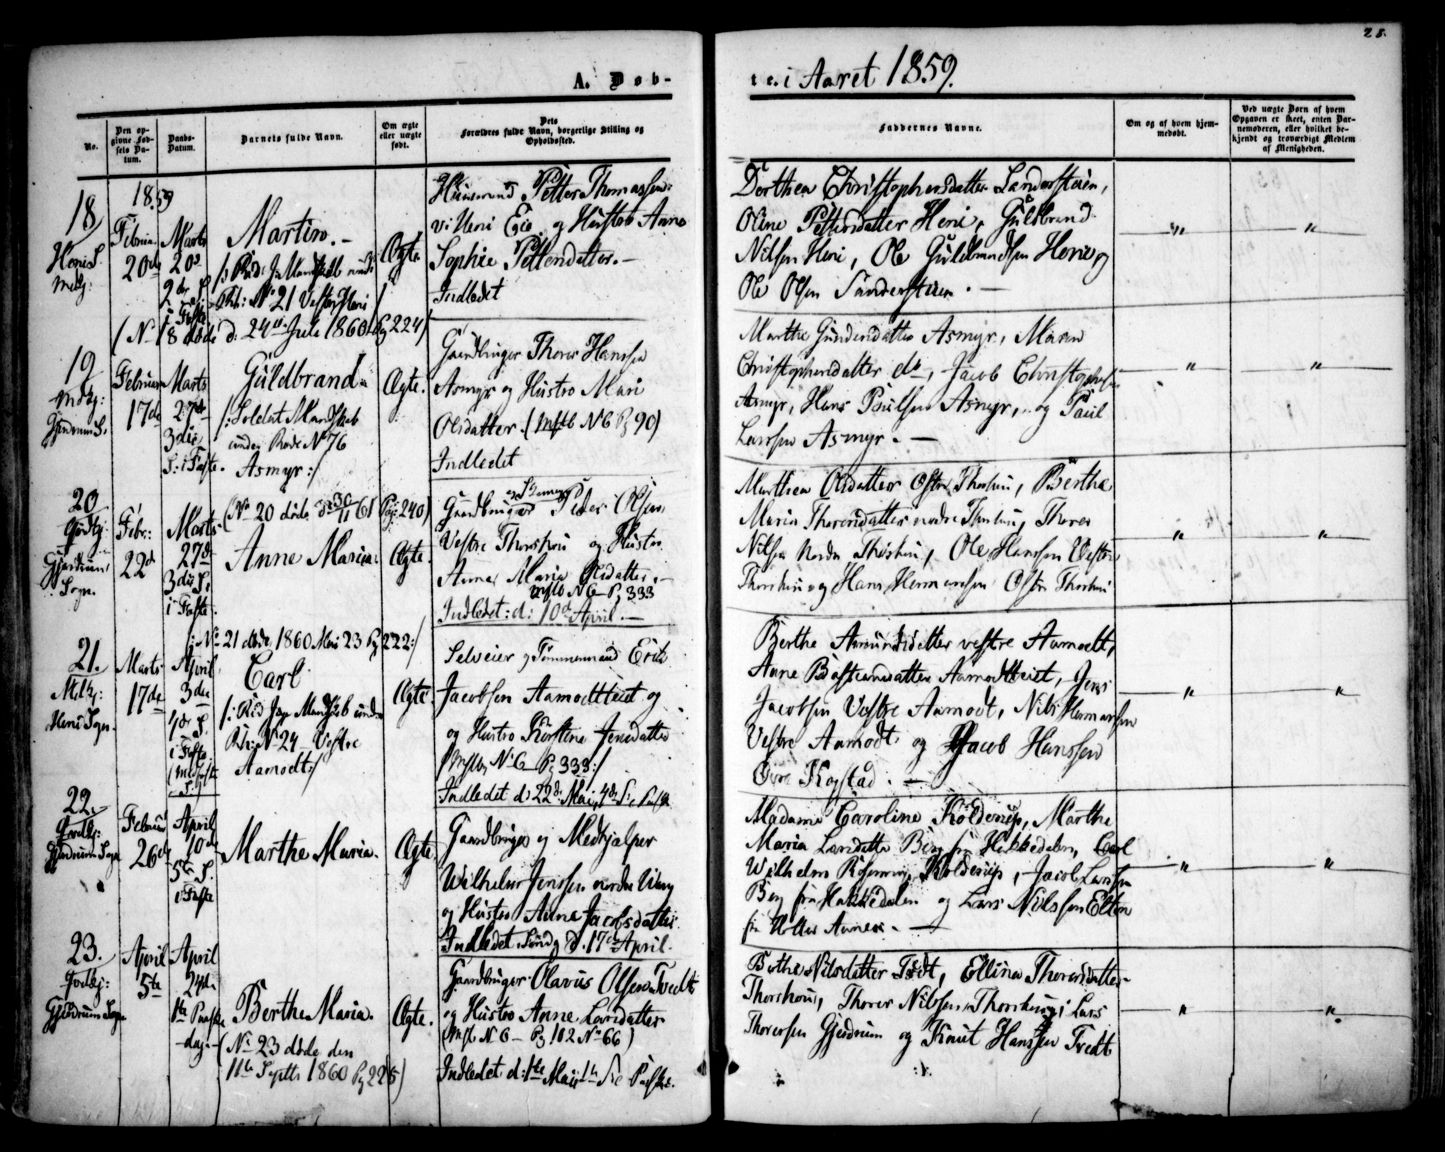 28.
A. Døb-
te i Aaret 1859.
No.
Den opgivne Fødsels Datum.
Daabs-Datum.
Barnets fulde Navn.
Om ægte eller uægte født.
Dets Forældres fulde Navn, borgerlige Stilling og Opholdssted.
Faddernes Navne.
Om og af hvem hjemmedøbt.
Ved uægte Børn af hvem Opgaven er skeet, enten Barnemoderen, eller hvilket bekjendt og troværdigt Medlem af Menigheden.
1859
18
Februar
20de
Marts
20d
Martin.
No 21 Vestre Heni
Ægte
Huusmand Petter Thomassen
og Hustro Anne
Sophie Pettersdatter.
Indledet
Dorthea Christophersdatter
Oline Pettersdatter Heni, Guldbrand
Nilsen Heni, Ole Guldbrandsen Heni og
Ole Olsen
(No 18 døde d: 24de Juli 1860 Pg 224)
19
Februar
17de
Marts
27de
3die
S: i Faste.
Guldbrand
/: Soldat Mandskab
under Rode No 76
Asmyr :/
Ægte.
Gaardbruger Thorer Hanssen
Asmyr og Hustro Mari
Olsdatter. (Mstb N6 Pg 90)
Indledet
Marthe Gundersdatter Asmyr, Maren
Christophersdatter do, Jacob Christophersen
Asmyr, Hans Paulsen Asmyr, og Paul
Larssen Asmyr.
20
Gjerdrum
Sogn.
Febr:
22d
Marts
27d
3die S.
i Faste
(No 20 døde d 30/11 61 Pag: 240)
Anne Maria.
Ægte.
Gaardbruger Peder Olsen
Vestre Thorshou og Hustro
Anne Maria Olsdatter.
N6 Pg 333
Indledet: d: 10d April.
Marthea Olsdatter Østre Thorshou, Berthe
Maria Thorersdatter nordre Thorshou, Thorer
Nilsen Nordre Thorshou, Ole Hanssen Vestre
Thorshou og Hans Hermansen Østre Thorshou
/: No 21 døde 1860 Mai 23 Pg 222 :/
21.
Heni Sogn.
Marts
17de
April
3die
4d S.
i Faste
Carl
No 24 Vestre
Aamodt :/
Ægte.
Selveier og Tømmermand Erik
Jacobsen Aamodteiet og
og Hustro Kirstine Jensdatter
No 6 Pg 333 :/
Indledet d: 22d Mai, 4de S:
Berthe Aamundsdatter vestre Aamodt,
Anne Bastiansdatter Aamodteiet, Jens
Jacobsen Vestre Aamodt, Nils Hermansen
Vestre Aamodt og Jacob Hanssen
Øvre Kogstad.
22.
Gjerdrum Sogn
Februar
26de
April
10de
5te S.
i Faste
Marthe Maria.
Ægte
Gaardbruger og Medhjælper
Wilhelm Jenssen nordre Viberg
og Hustro Anne Jacobsdatter.
Indledet Sønd. d. 17de April.
Madame Caroline Kolderup, Marthe
Maria Larsdatter Berg fra Hakkedalen, Carl
Wilhelm Rosenning Kolderup, Jacob Larssen
Berg fra Hakkedalen og Lars Nilssen Elton
fra Holter Annex.
23.
Gjerdrum Sogn
April
5te
April
24de
1ste Paaske
dag.
Berthe Maria.
(No 23 døde den
11te Septb 1860 Pg 225)
Ægte.
Gaardbruger Olavus Olsen Tvedt
og Hustro Anne Larsdatter
(Mstb N 6 Pg 102 No 66)
Indledet d: 1ste Mai 1ste S. e. Paaske.
Berthe Nilsdatter Tvedt, Elline Thorersdatter
Thorshoui, Thorer Nilssen Thorshoug, Lars
Thorersen Gjerdrum og Knut Hanssen Tvedt